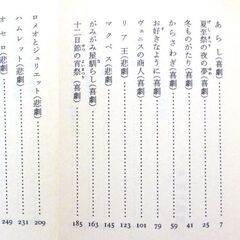 あらし(喜劇)……7
夏至祭の夜の夢(喜劇)……25
冬ものがたり(喜劇)……41
からさわぎ(喜劇)……59
お好きなように(喜劇)……79
ヴェニスの商人(喜劇)……101
リア王(悲劇)……123
マクベス(悲劇)……145
がみがみ屋馴らし(喜劇)……163
十二日節の宵祭(喜劇)……185
ロメオとジュリエット(悲劇)……209
ハムレット(悲劇)……231
オセロ(悲劇)……249